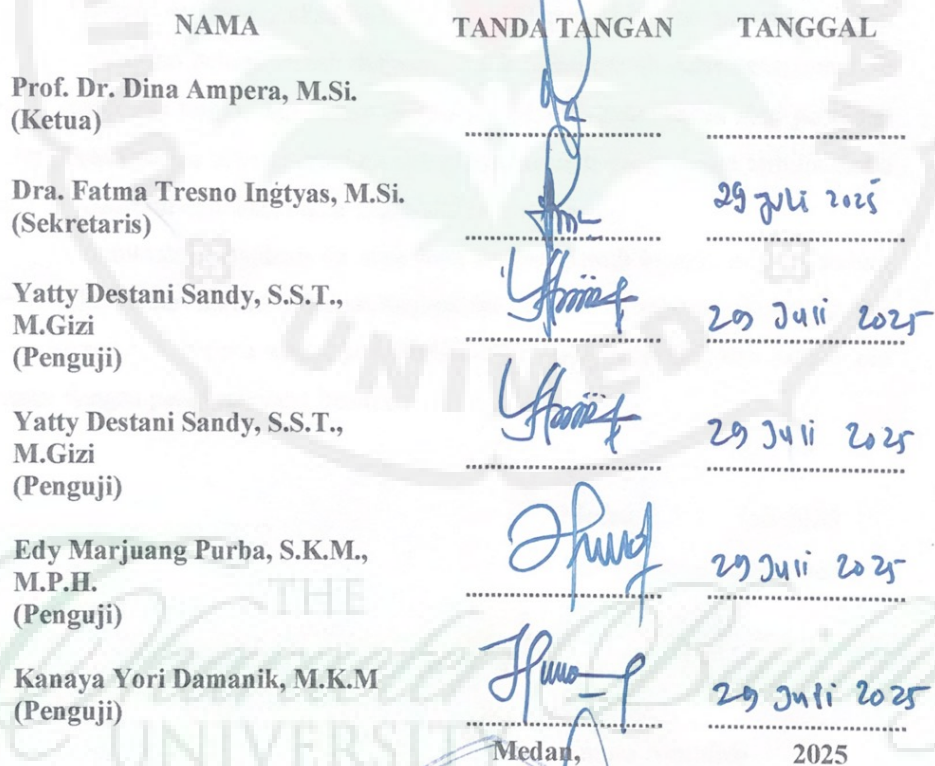 NAMA TANDA TANGAN TANGGAL
Prof. Dr. Dina Ampera, M.Si.
(Ketua)
Dra. Fatma Tresno Ingtyas, M.Si.
(Sekretaris)
29 Juli 2025
Yatty Destani Sandy, S.S.T.,
M.Gizi
(Penguji)
29 Juli 2025
Yatty Destani Sandy, S.S.T.,
M.Gizi
(Penguji)
29 Juli 2025
Edy Marjuang Purba, S.K.M.,
M.P.H.
(Penguji)
29 Juli 2025
Kanaya Yori Damanik, M.K.M
(Penguji)
29 Juli 2025
Medan, 2025
UNIMED
THE
Character Build
UNIVERSIT